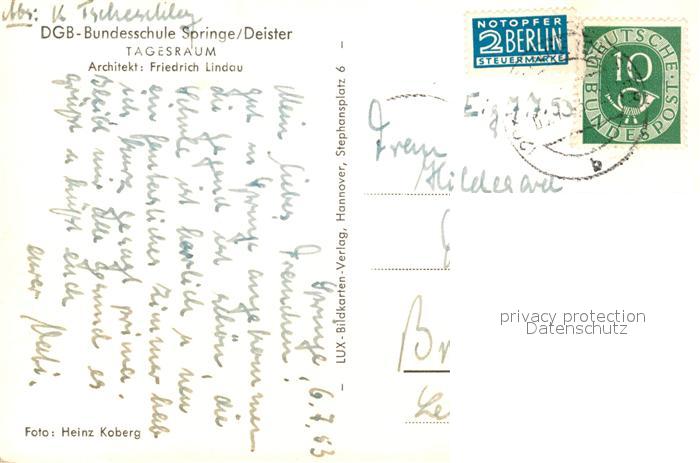 Abs: K Tscheschlog
DGB-Bundesschule Springe/Deister
TAGESRAUM
Architekt: Friedrich Lindau
Springe, 6.7.53
Mein liebes Frauchen!
gut in Springe angekommen
die Gegend ist schön die
Schule ist herrlich u neu
ein fantastisches Zimmer hab
ich kurz gesagt prima.
Bleibt mir alle gesund es
grüßt u küßt euch
euer Vati.
Foto: Heinz Koberg
LUX-Bildkarten-Verlag, Hannover, Stephansplatz 6
NOTOPFER
2 BERLIN
STEUERMARKE
DEUTSCHE BUNDESPOST
10
Eig. 7.7.53
Frau
Hildegard
Br
privacy protection
Datenschutz